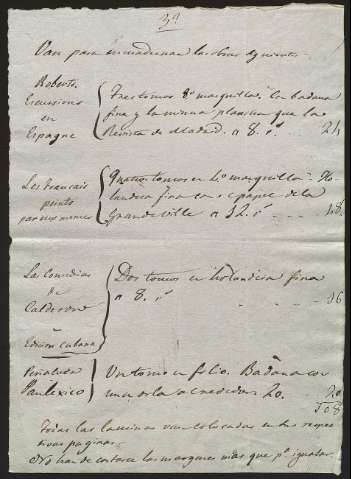 3ª
Van para encuadernar las obras siguientes
Roberts
Excursions
en
Espagne
Tres tomos 8º marquilla. Con badana
fina y la misma plancha que la
Revista de Madrid. a 8. rˢ 24
Les Français
peints
par eux memes
Quatro tomos en 4º marquilla. Ho-
landesa fina con papel de la
Grandeville a 12. rˢ 48
Las Comedias
de
Calderon
Edicion cubana
Dos tomos en holandesa fina
a 8. rˢ 16
Peñalosa
Un tomo en folio. Badana con
una orla a 20. 20
108
Todas las laminas van colocadas en sus respec
tivas paginas.
No han de cortarse los margenes mas que pª igualar.